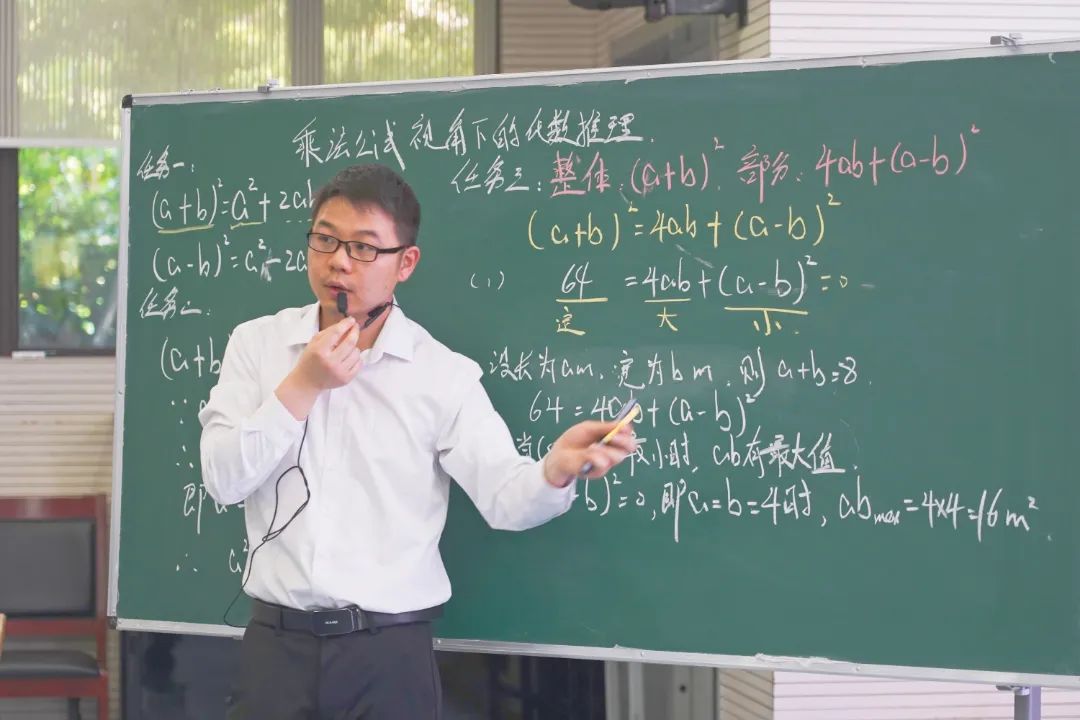 乘法公式视角下的代数推理.
任务一:
(a+b)²=a²+2ab
(a-b)²=a²-2a
任务二:
(a+b
∵ a
∴
即
∴ a²
任务三: 整体:(a+b)². 部分: 4ab+(a-b)²
(a+b)²=4ab+(a-b)²
(1) 64 =4ab+(a-b)²=0
定 大 小
设长为am, 宽为bm, 则 a+b=8.
64=4ab+(a-b)²
当( 小时, ab有最大值.
b)²=0, 即a=b=4时, ab max=4×4=16m².